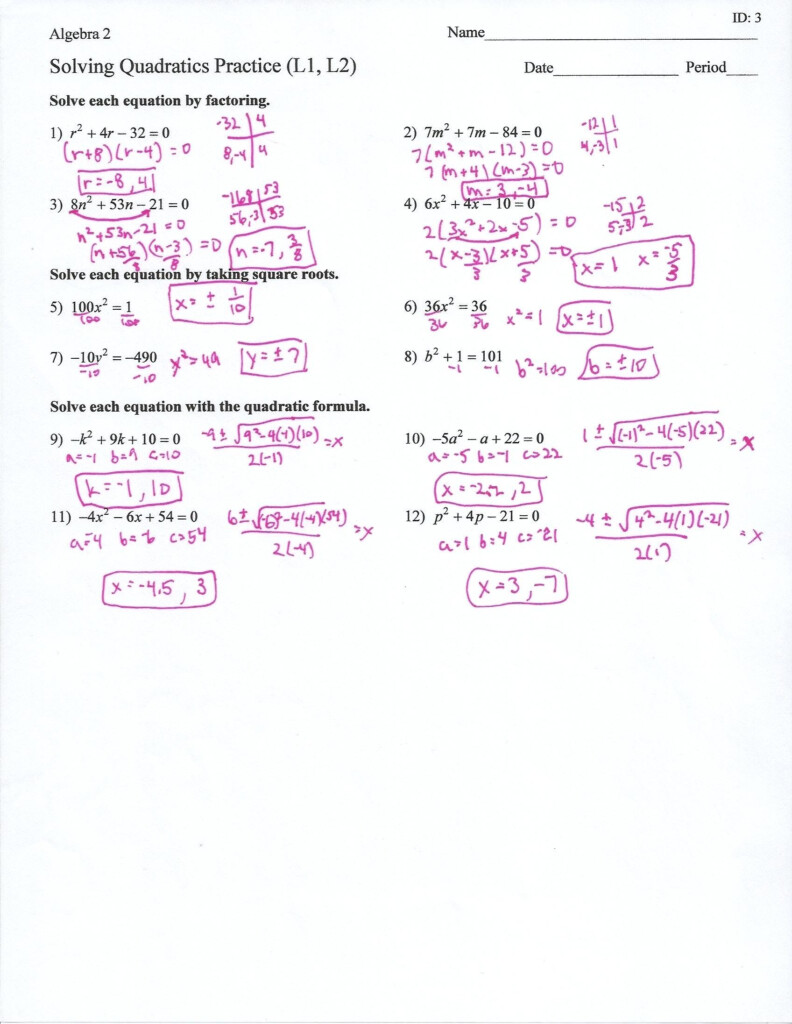 ID: 3
Algebra 2
Name
Solving Quadratics Practice (L1, L2)
Date Period
Solve each equation by factoring.
1) r² + 4r − 32 = 0
-32 | 4
8,-4 | 4
(r+8)(r-4) = 0
r = -8, 4
2) 7m² + 7m − 84 = 0
-12 | 1
4,-3 | 1
7(m² + m - 12) = 0
7(m+4)(m-3) = 0
m = 3, -4
3) 8n² + 53n − 21 = 0
-168 | 53
56,-3 | 53
n²+53n-21 = 0
(n+56/8)(n-3/8) = 0
n = -7, 3/8
4) 6x² + 4x − 10 = 0
-15 | 2
5,-3 | 2
2(3x²+2x-5) = 0
2(x-3/3)(x+5/3) = 0
x = 1 x = -5/3
Solve each equation by taking square roots.
5) 100x² = 1
100 100
x = ± 1/10
6) 36x² = 36
36 36
x² = 1
x = ±1
7) −10y² = −490
-10 -10
y² = 49
y = ± 7
8) b² + 1 = 101
-1 -1
b² = 100
b = ±10
Solve each equation with the quadratic formula.
9) −k² + 9k + 10 = 0
-9 ± √9²-4(-1)(10) = x
2(-1)
a = -1 b = 9 c = 10
k = -1, 10
10) −5a² − a + 22 = 0
1 ± √(-1)² - 4(-5)(22) = x
2(-5)
a = -5 b = -1 c = 22
x = -2.2, 2
11) −4x² − 6x + 54 = 0
6 ± √-6²-4(-4)(54) = x
2(-4)
a = 4 b = -6 c = 54
x = -4.5, 3
12) p² + 4p − 21 = 0
-4 ± √4²-4(1)(-21) = x
2(1)
a = 1 b = 4 c = -21
x = 3, -7